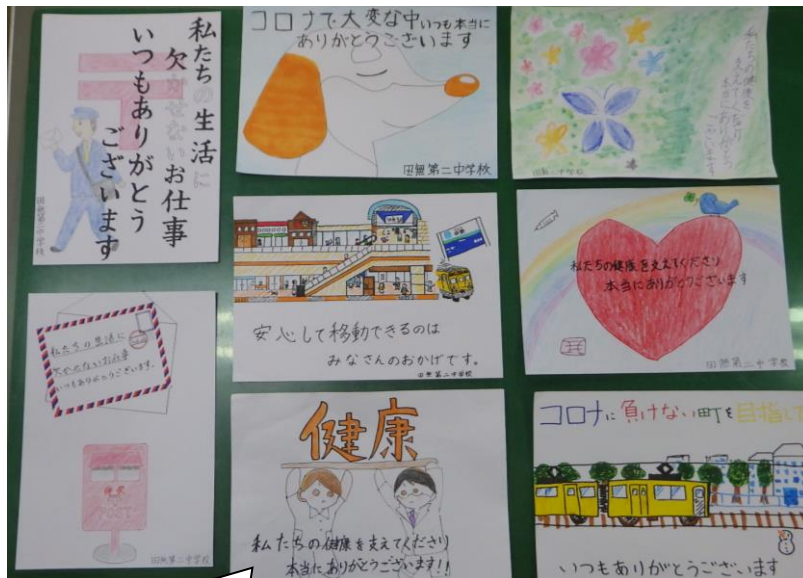 私たちの生活に
欠かせないお仕事
いつもありがとう
ございます
田無第二中学校
コロナで大変な中いつも本当に
ありがとうございます
田無第二中学校
私たちの健康を
支えてくださり
本当にありがとう
ございます
田無第二中学校
安心して移動できるのは
みなさんのおかげです。
田無第二中学校
私たちの健康を支えてくださり
本当にありがとうございます
田無第二中学校
私たちの生活に
欠かせないお仕事
いつもありがとうございます。
POST
田無第二中学校
健康
私たちの健康を支えてくださり
本当にありがとうございます!!
コロナに負けない町を目指して
いつもありがとうございます